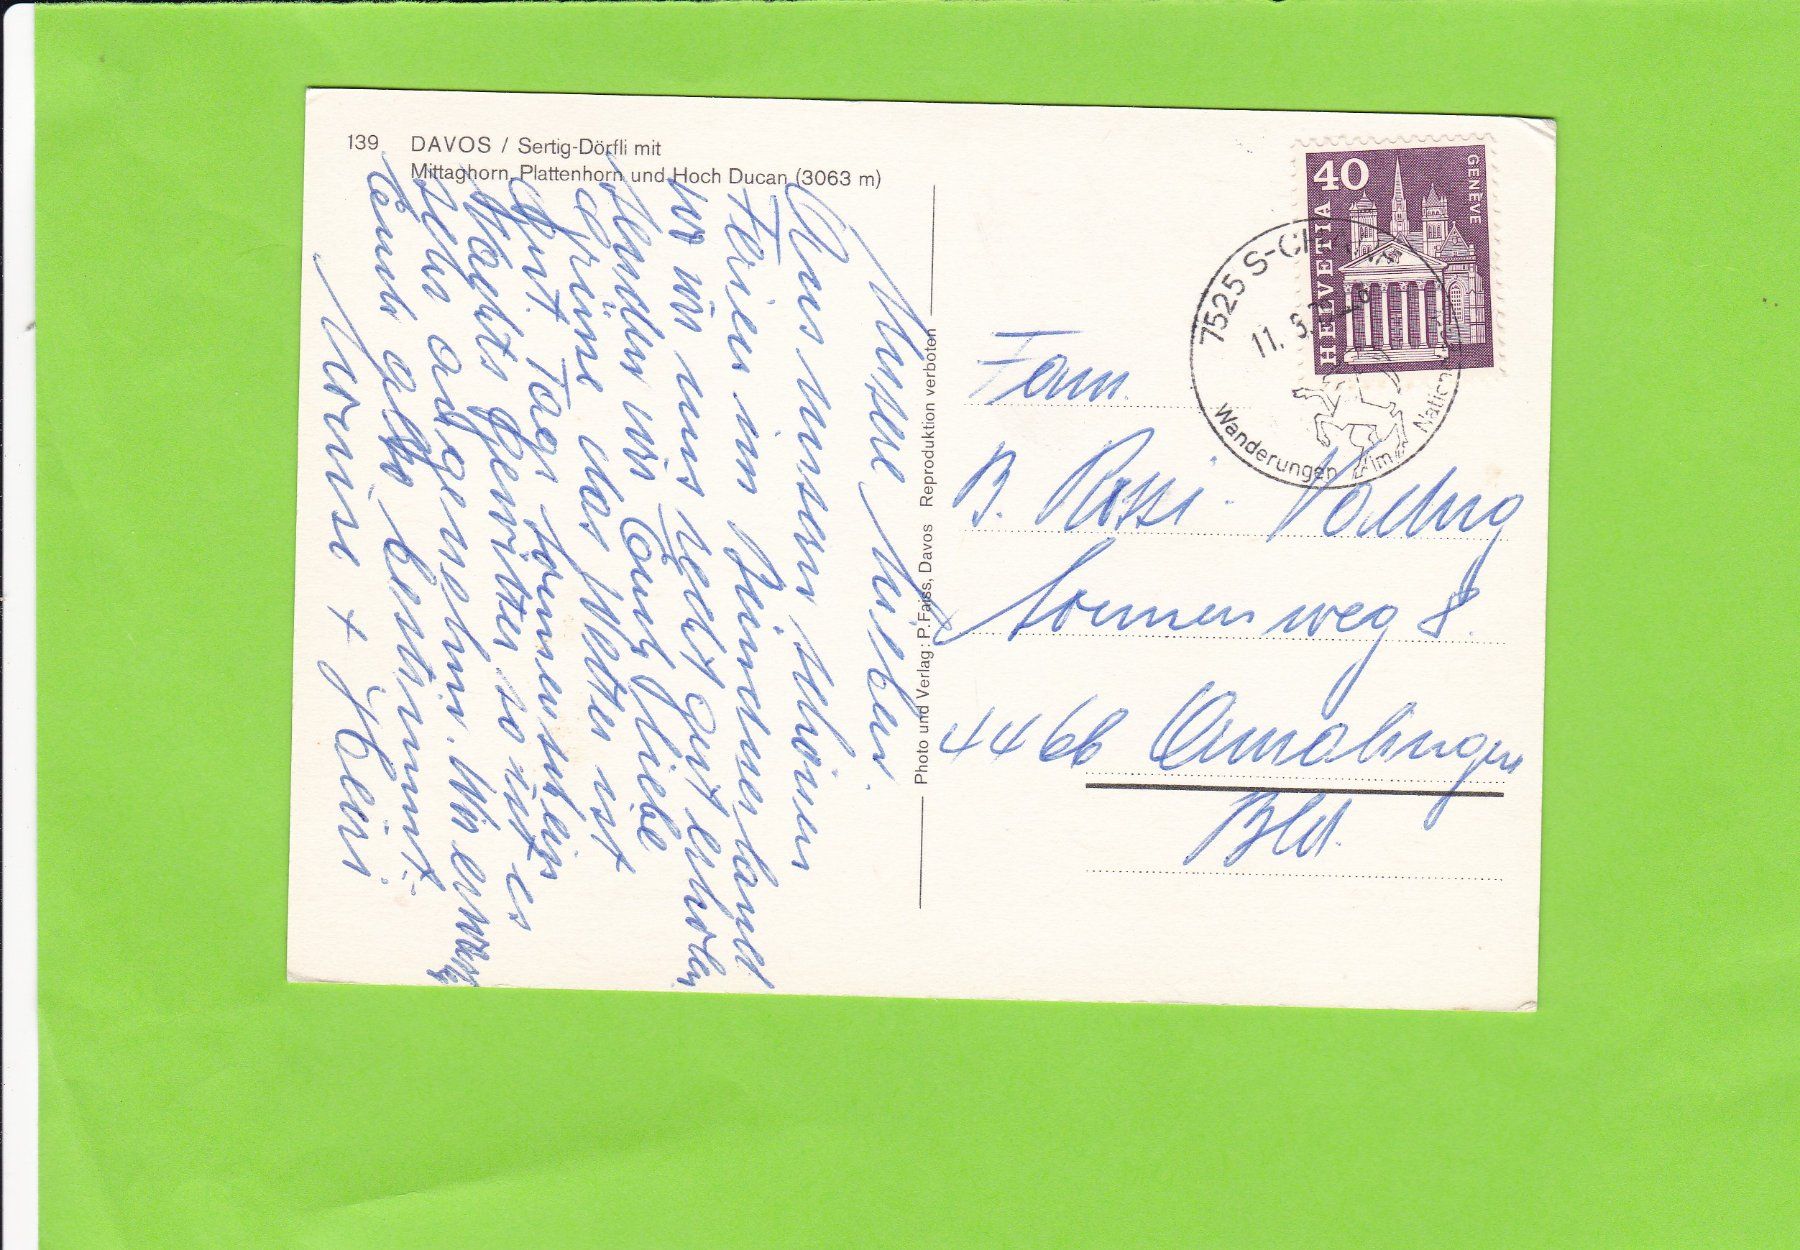 139 DAVOS / Sertig-Dörfli mit
Mittaghorn, Plattenhorn und Hoch Ducan (3063 m)
Unsere lieben
Aus unsern schönen
Ferien im Bündnerland
wo wir uns recht gut erholen
senden wir Euch liebe
Grüsse das Wetter ist
gut. Tags Sonnenschein
Nachts Gewitter so ist es
sehr angenehm. Wir
alles bestimmt.
+ Heiri
Photo und Verlag: P. Faiss, Davos Reproduktion verboten
HELVETIA
40
GENÈVE
7525 S-CH
11.
Wanderungen im
Fam.
B. Rossi-
Sonnenweg 8.
4466 Ormalingen
Bld.